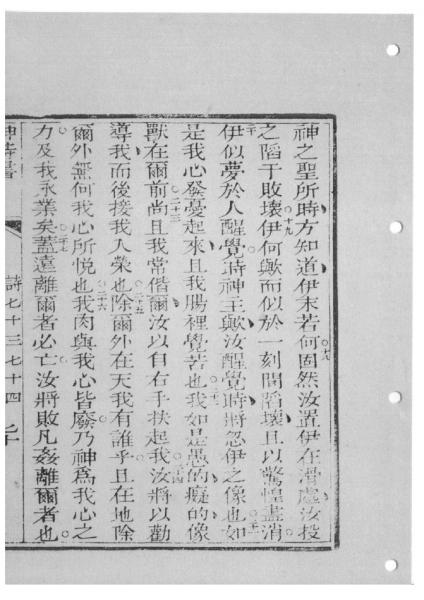 神之聖所時方知道伊末若何○十八固然汝置伊在滑處汝投
之陷于敗壞○十九伊何歟而似於一刻間陷壞且以驚惶盡消○
二十伊似夢於人醒覺時神主歟汝醒覺時將忽伊之像也○二十一如
是我心發憂起來且我腸裡覺苦也○二十二我如是愚的癡的像
獸在爾前○二十三尚且我常偕爾汝以自右手扶起我○二十四汝將以勸
導我而後接我入榮也○二十五除爾外在天我有誰乎且在地除
爾外無何我心所悅也○二十六我肉與我心皆廢○乃神為我心之
力及我永業矣○二十七蓋遠離爾者必亡○汝將敗凡姦離爾者也○
神詩書
詩七十三 七十四